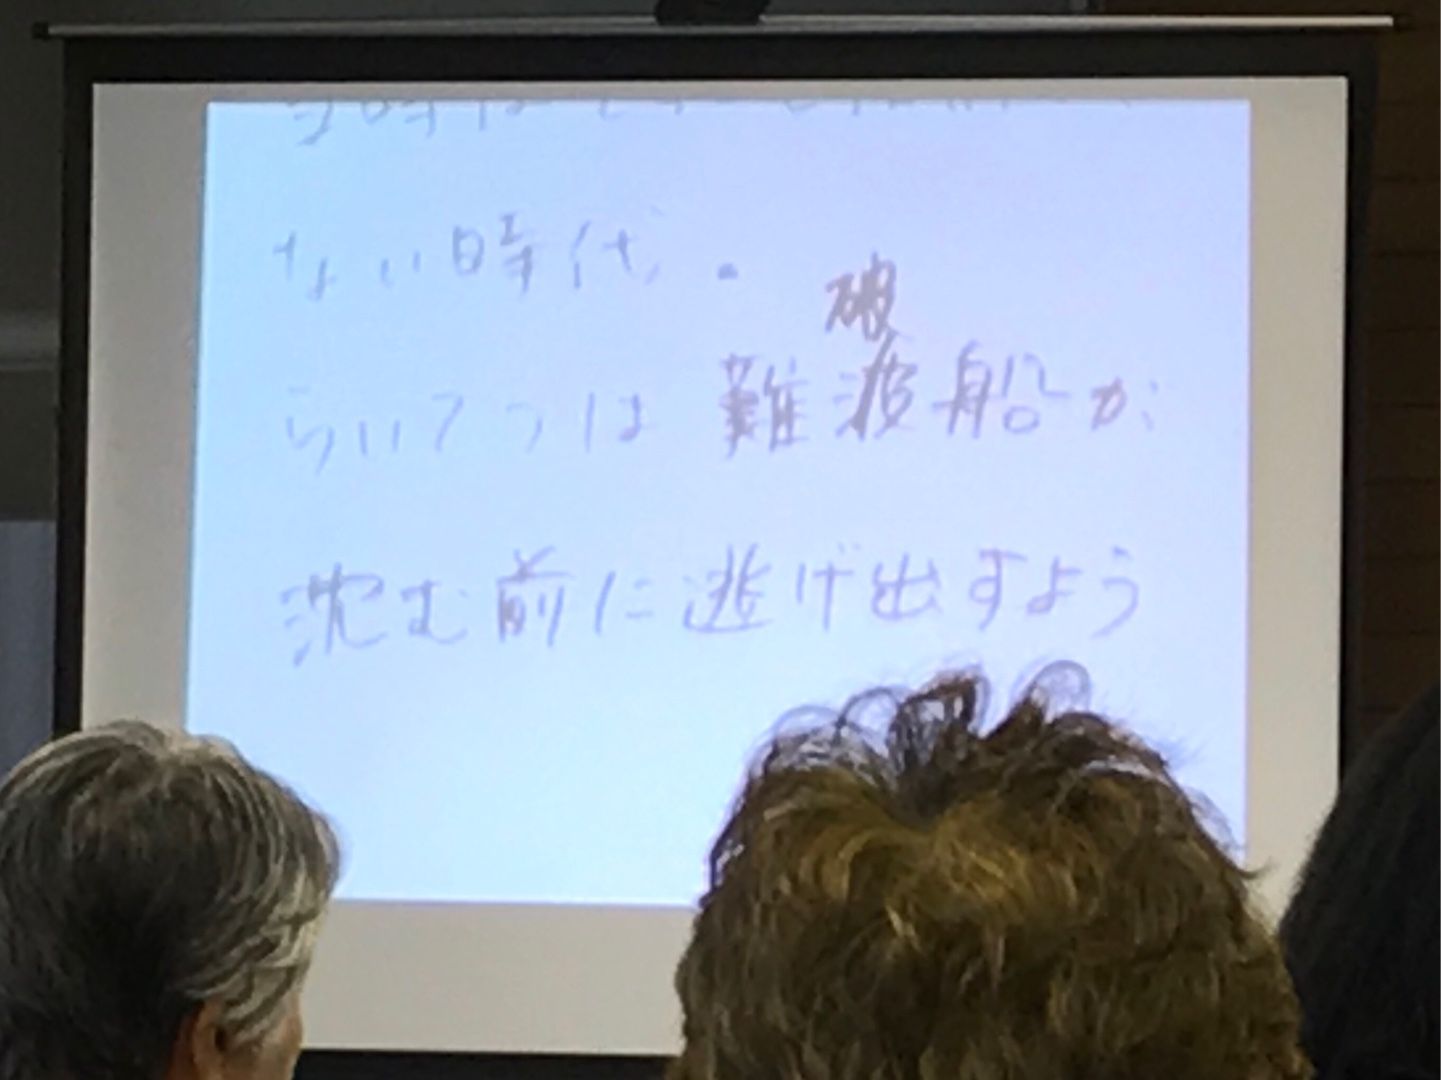 ない時代.
破
らいてうは難波船が
沈む前に逃げ出すよう